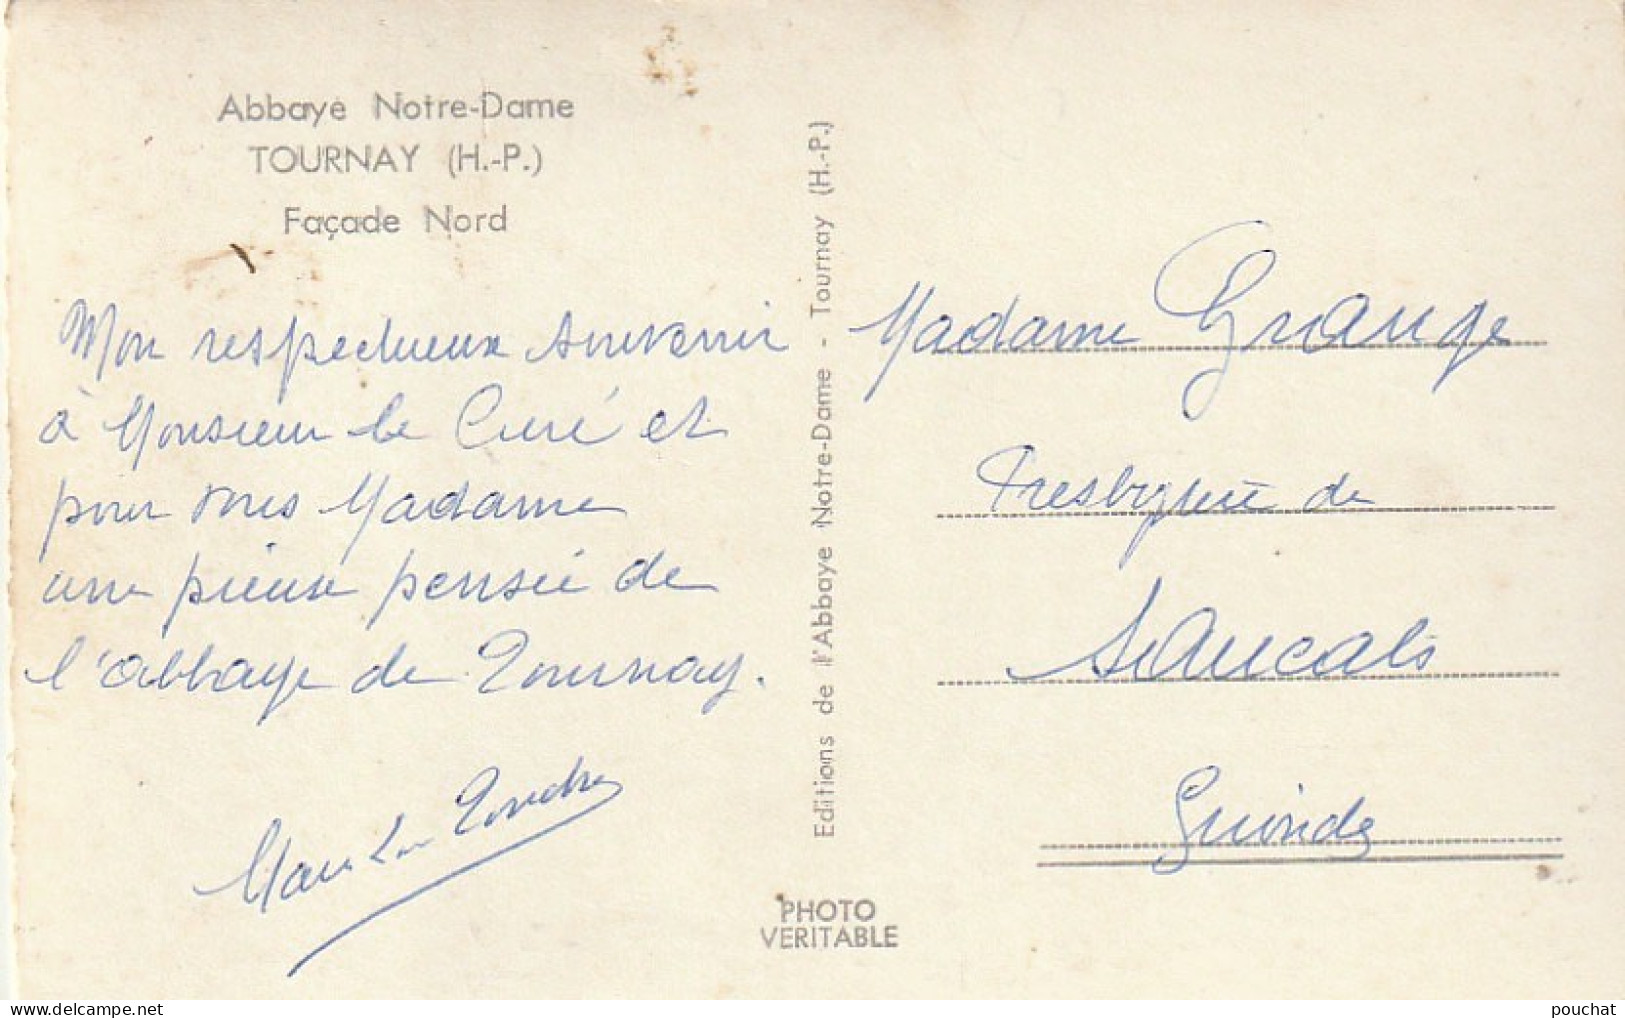 Abbaye Notre-Dame
TOURNAY (H.-P.)
Façade Nord
Mon respectueux souvenir
à Monsieur le Curé et
pour vous Madame
une pieuse pensée de
l'abbaye de Tournay.
Editions de l'Abbaye Notre-Dame - Tournay (H.-P.)
PHOTO
VERITABLE
Madame Grange
Presbytère de
Saucats
Gironde
www.delcampe.net
pouchat